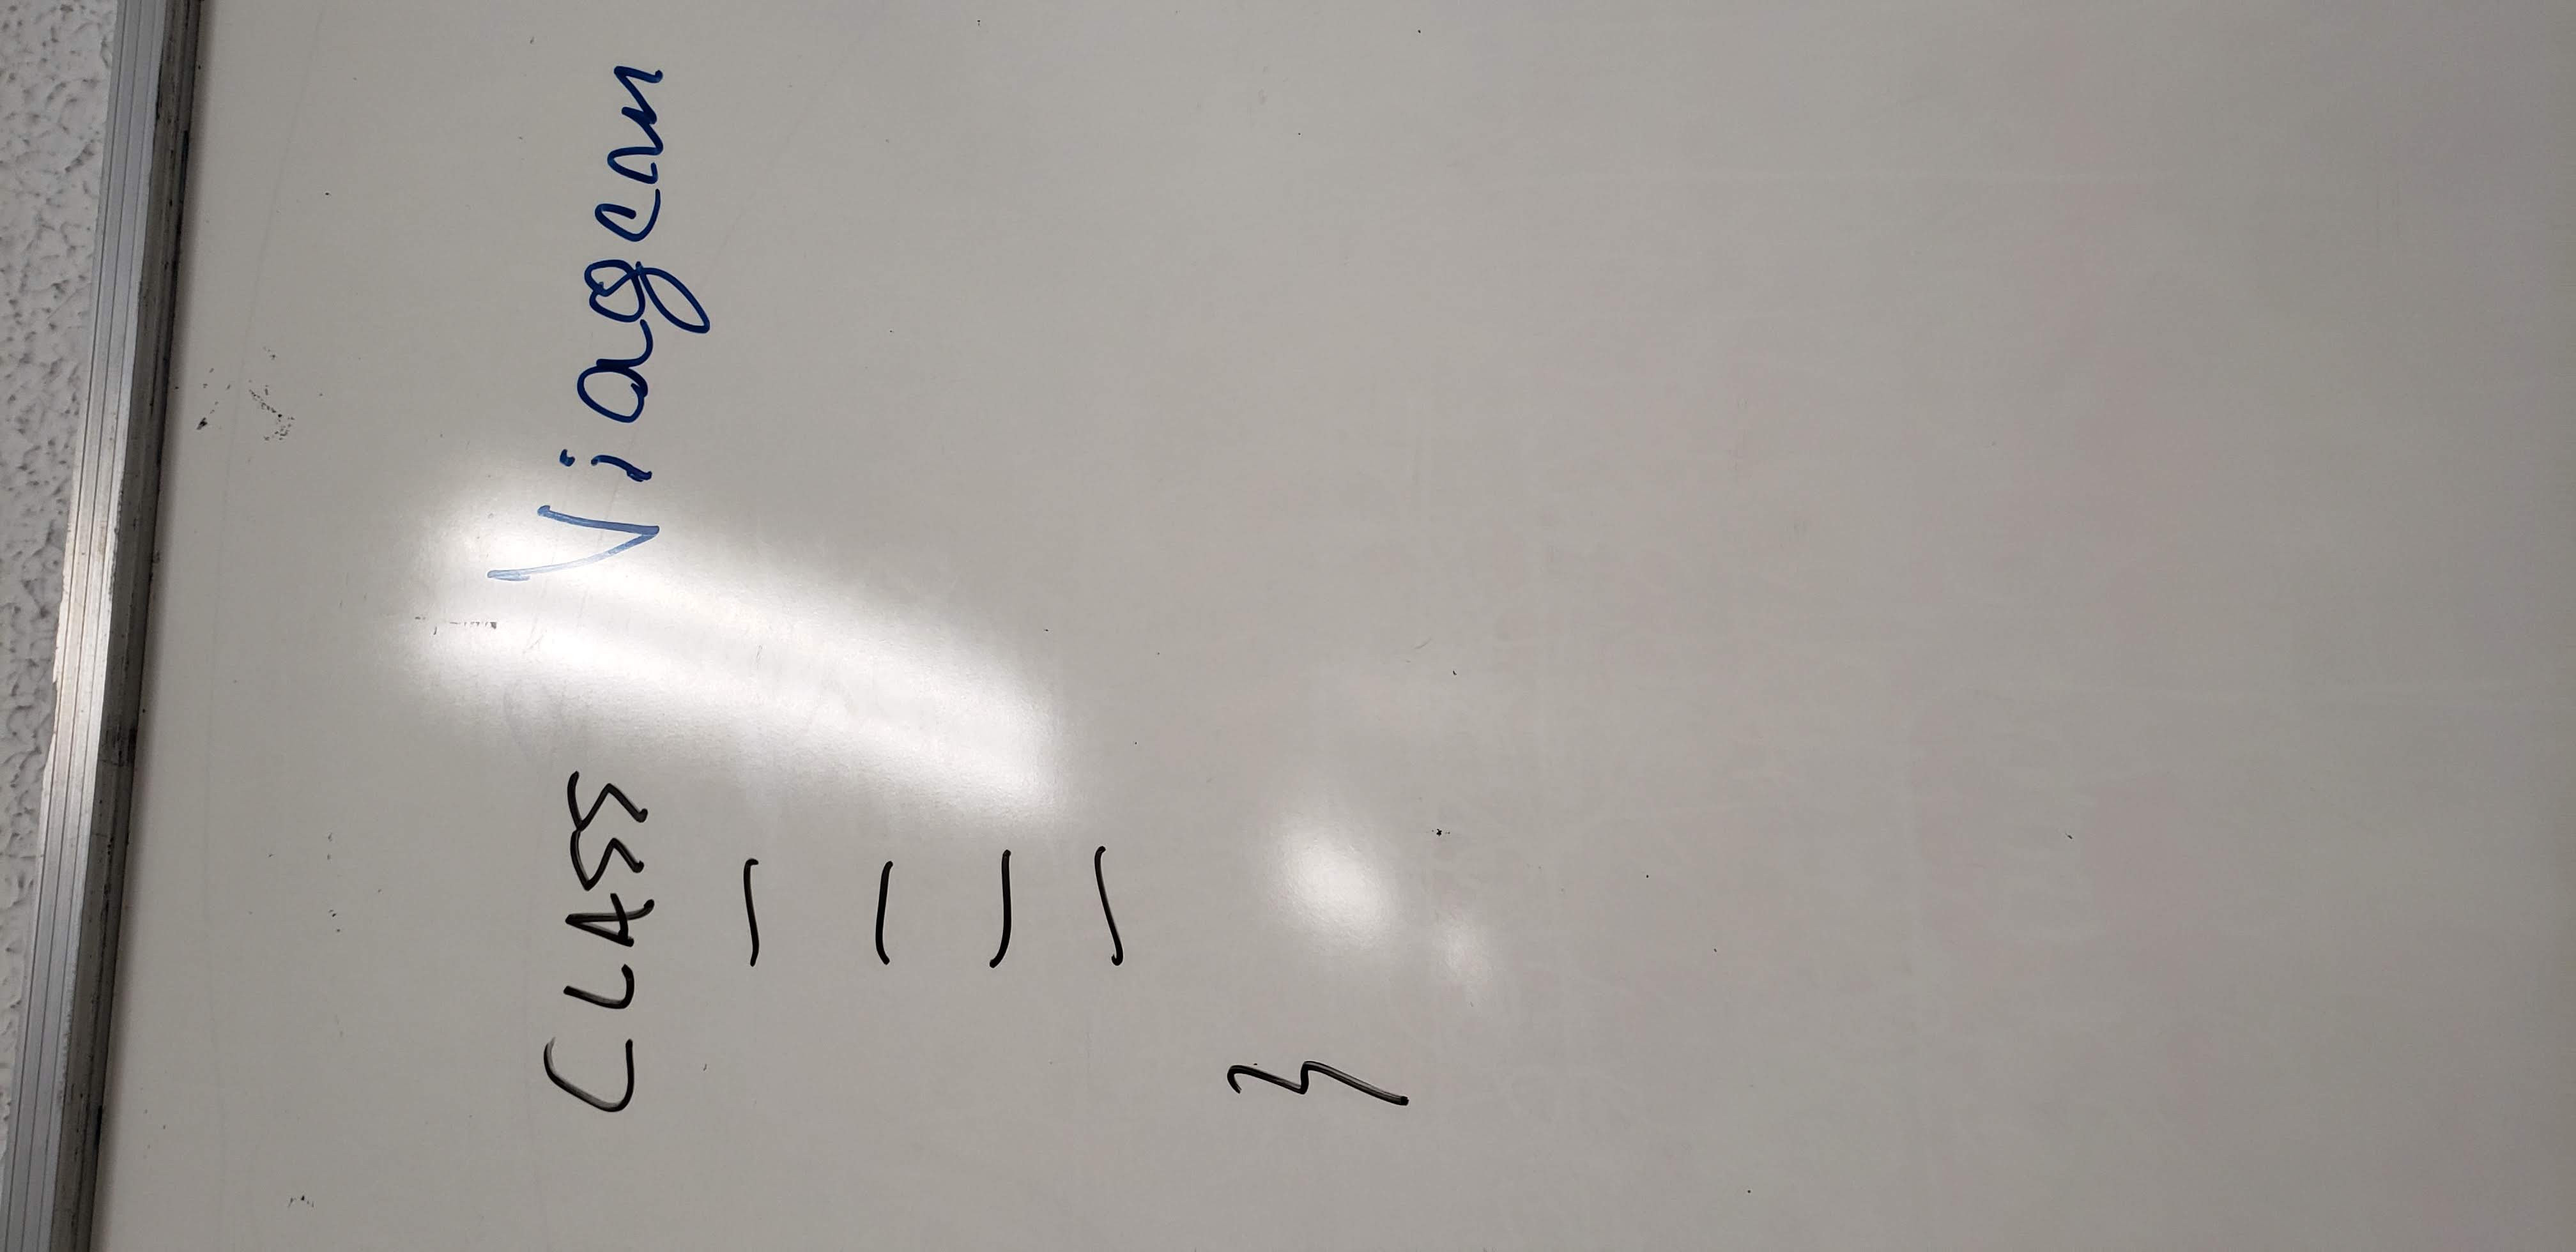 CLASS Viagem
—
—
—
—
}